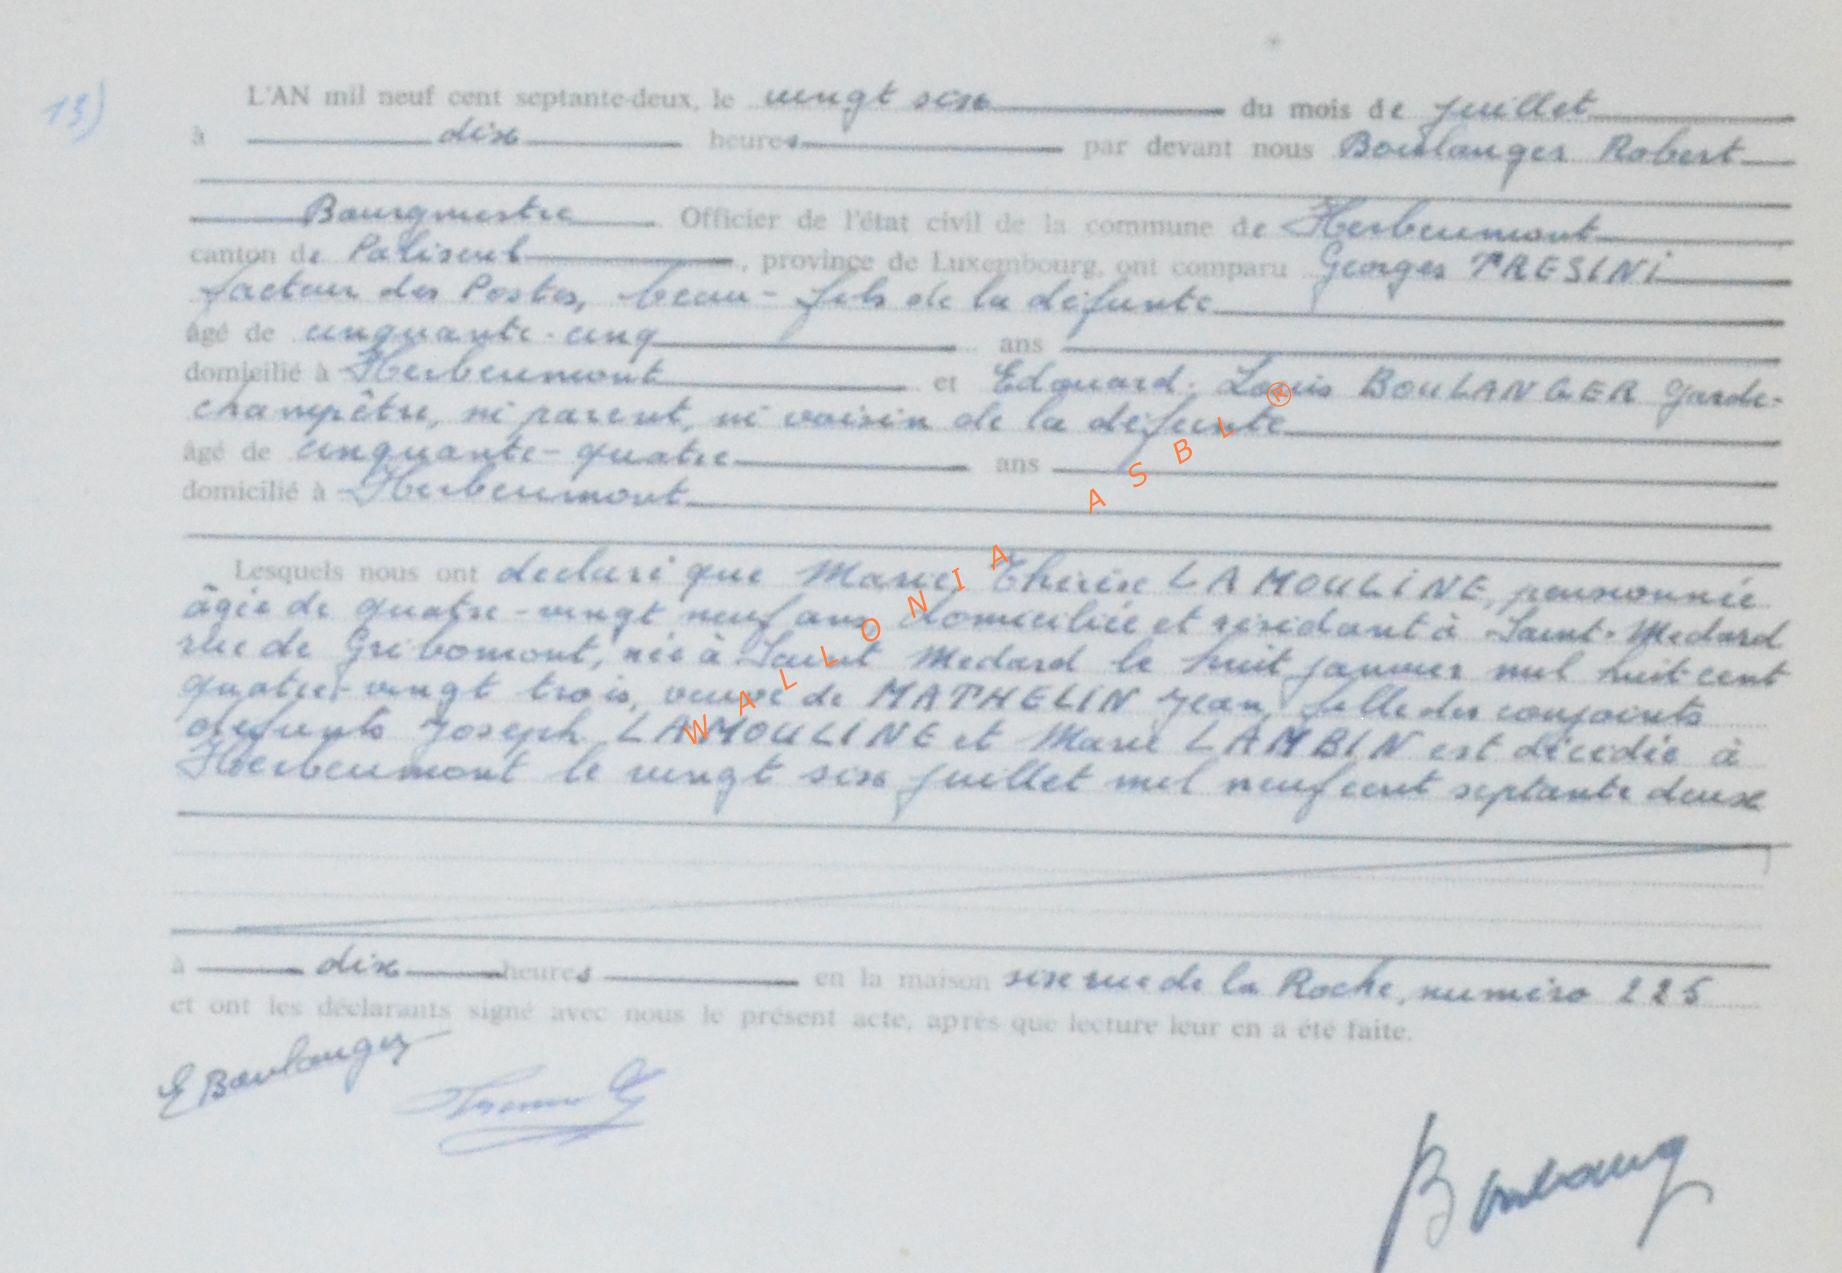 13)
L'AN mil neuf cent septante-deux, le vingt six du mois de juillet
à dix heures par devant nous Boulanger Robert
Bourgmestre Officier de l'état civil de la commune de Herbeumont
canton de Paliseul, province de Luxembourg, ont comparu Georges TRESINI
facteur des Postes, beau-fils de la défunte
âgé de cinquante-cinq ans
domicilié à Herbeumont et Edouard. Louis BOULANGER Garde-
champêtre, ni parent, ni voisin de la défunte
âgé de cinquante-quatre ans
domicilié à Herbeumont
Lesquels nous ont déclaré que Marie Thérèse LAMOULINE, pensionnée
âgée de quatre-vingt neuf ans, domiciliée et résidant à Saint-Medard
rue de Gribomont, née à Saint Medard le huit janvier mil huit cent
quatre-vingt trois, veuve de MATHELIN Jean, fille des conjoints
defunts Joseph LAMOULINE et Marie LAMBIN est décédée à
Herbeumont le vingt six juillet mil neuf cent septante deux
à dix heures en la maison sise rue de la Roche, numéro 225
et ont les déclarants signé avec nous le présent acte, après que lecture leur en a été faite.
E Boulanger
Boulang
WALLONIA ASBL ®